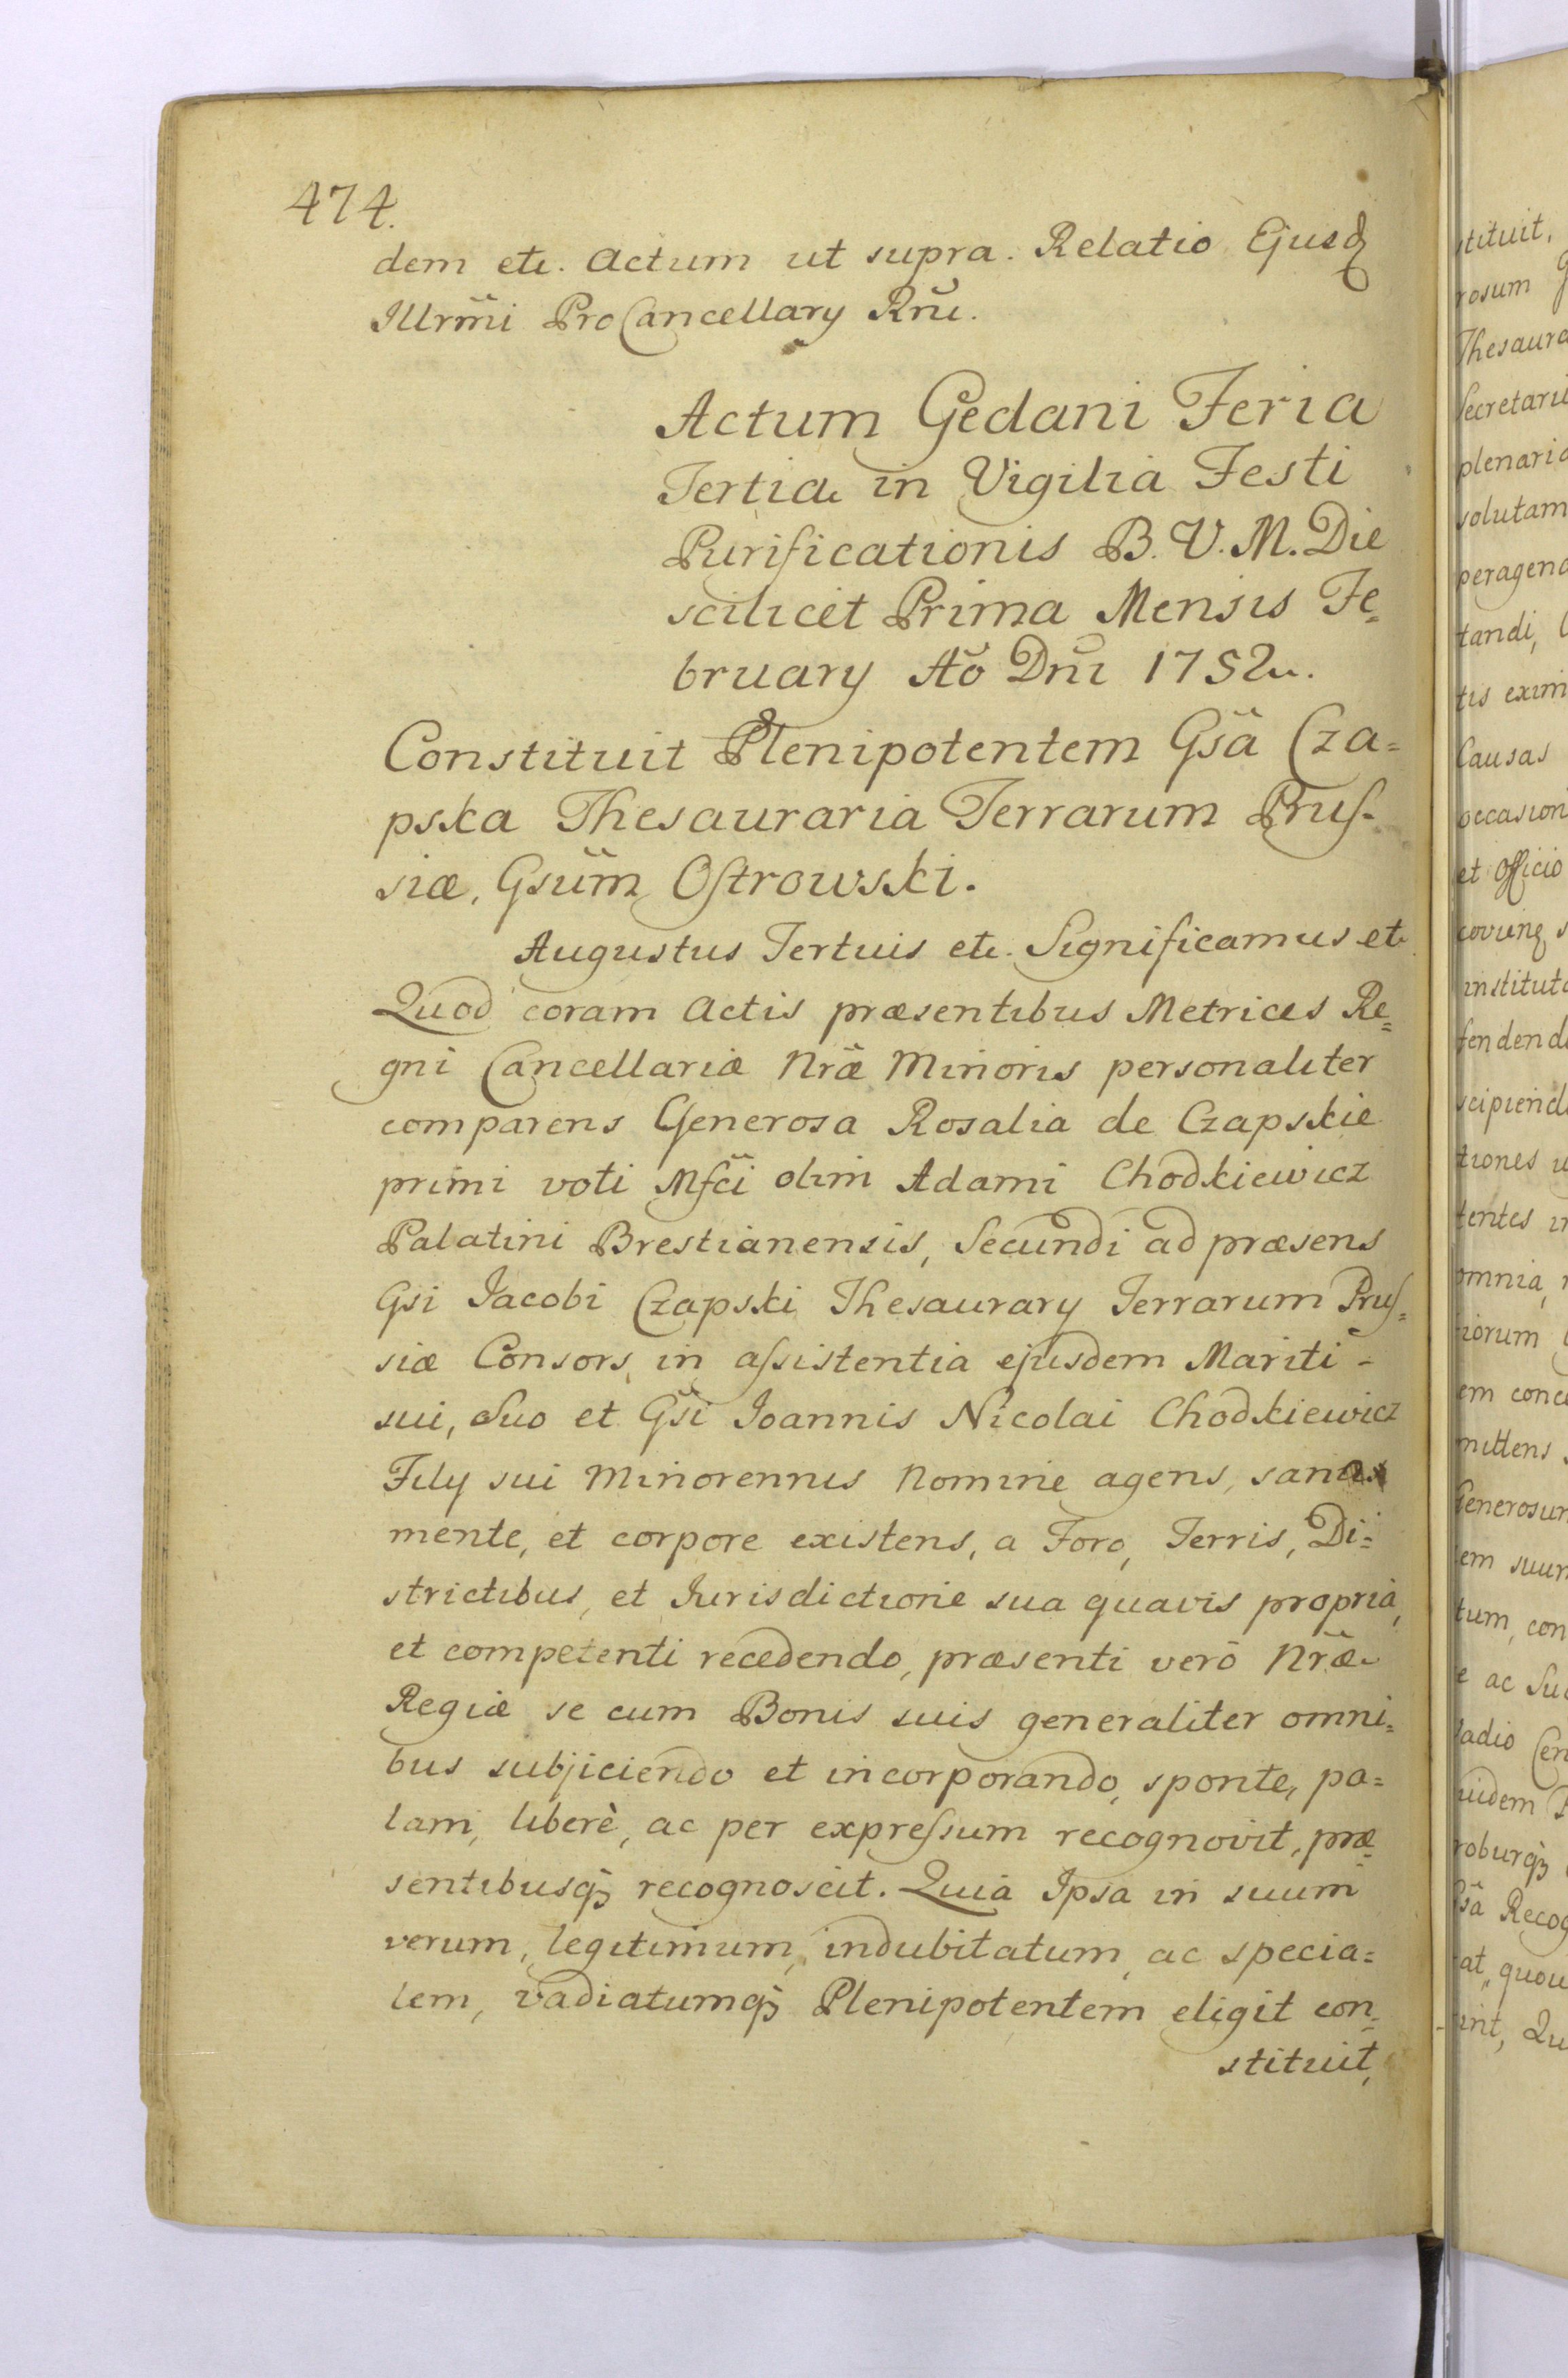 474.
dem etc. Actum ut supra. Relatio Ejusd
Illrm̃i ProCancellary Rn̄i.
Actum Gedani Feria
Tertia in Vigilia Festi
Purificationis B. V. M. Die
scilicet Prima Mensis Fe=
bruary Aō Dn̄i 1752.
Constituit Plenipotentem Gsã Cza=
pska Thesauraria Terrarum Pruſ-
siæ, Gsūm Oſtrowski.
Augustus Tertuis etc. Significamus etc.
Quod coram Actis præsentibus Metrices Re=
gni Cancellariæ Nræ̃ Minoris personaliter
comparens Generosa Rosalia de Czapskie
primi voti Mfc̃i olim Adami Chodkiewicz
Palatini Brestianensis, Secundi ad præsens
Gsi Jacobi Czapski Thesaurary Terrarum Pruſ=
siæ Consors, in aſsistentia ejusdem Mariti -
sui, suo et Gs̃i Joannis Nicolai Chodkiewicz
Fily sui Minorennis Nomine agens, sana
mente, et corpore existens, a Foro, Terris, Di=
strictibus, et Jurisdictione sua quavis propria,
et competenti recedendo, præsenti verò Nræ̃
Regiæ se cum Bonis suis generaliter omni=
bus subjiciendo et incorporando, sponte, pa=
lam, liberè, ac per expreſsum recognovit, præ=
sentibusqȝ recognoscit. Quia Ipsa in suum
verum, legitimum, indubitatum, ac specia=
lem, vadiatumqȝ Plenipotentem eligit con=
stituit,
stituit,
rosum
Thesaura
Secretari
plenaria
solutam
peragend
tandi,
tis exim
Causas
occasion
et Officio
covunq s
institut
fendend
scipiend
tiones
tentes
omnia,
iorum
em conc
mittens
Generosum
em suum
tum, con
e ac Suc
adio Cen
uidem
roburqȝ
Gsã Recog
at, quou
int, Qu